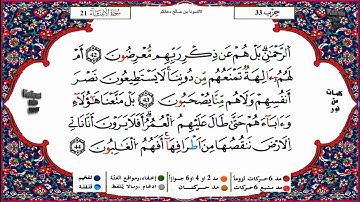 لاتنسونا من صالح دعائكم
حزب 33
سورة الأنبياء 21
الرَّحْمَٰنِ بَلْ هُمْ عَن ذِكْرِ رَبِّهِم مُّعْرِضُونَ 42 أَمْ
لَهُمْ ءَالِهَةٌ تَمْنَعُهُم مِّن دُونِنَا لَا يَسْتَطِيعُونَ نَصْرَ
أَنفُسِهِمْ وَلَا هُم مِّنَّا يُصْحَبُونَ 43 بَلْ مَتَّعْنَا هَٰؤُلَاءِ
وَءَابَاءَهُمْ حَتَّىٰ طَالَ عَلَيْهِمُ الْعُمُرُ أَفَلَا يَرَوْنَ أَنَّا نَأْتِي
الْأَرْضَ نَنقُصُهَا مِنْ أَطْرَافِهَا أَفَهُمُ الْغَالِبُونَ 44
كلمات
من
نور
مد 6 حركات لزوما مد 2 أو 4 أو 6 جوازا إخفاء، ومواقع الغنة تفخيم
مد مشبع 6 حركات مد حركتان إدغام، وما لا يلفظ قلقلة